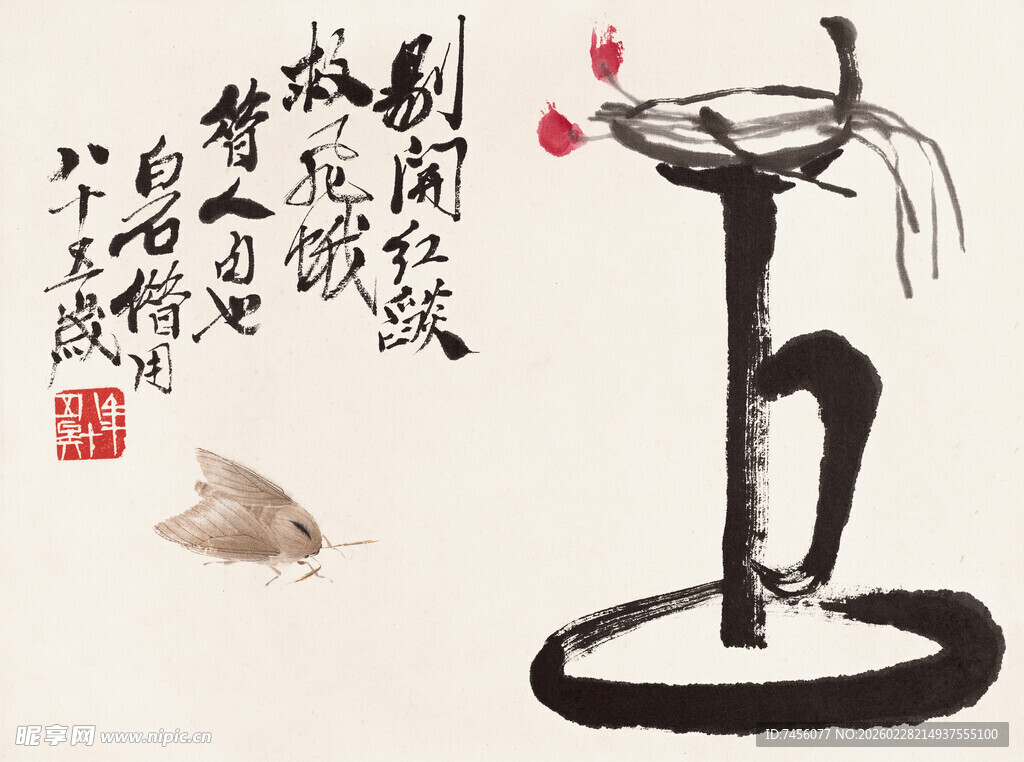 剔開紅燄
救飛蛾
昔人句也
白石借用
八十五歲
年八十五矣
昵享网 www.nipic.cn
ID:7456077 NO:20260228214937555100